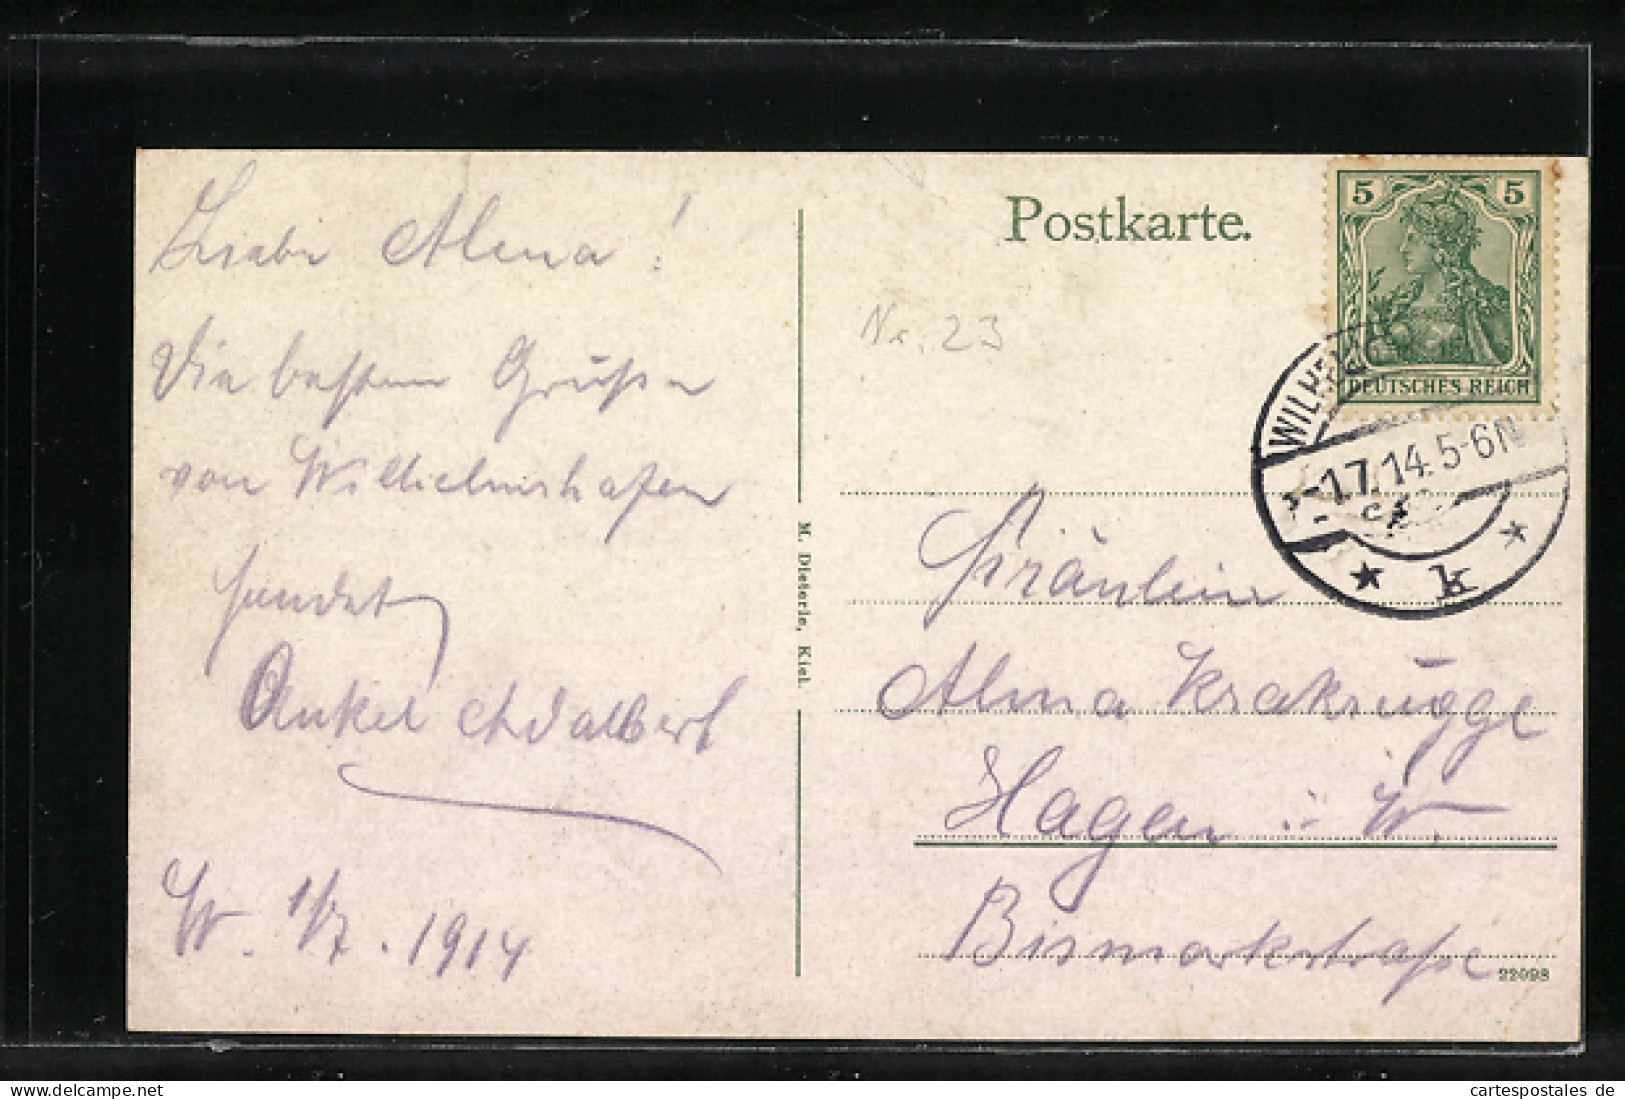 Liebe Alma!
Die besten Grüße
von Wilhelmshafen
sendet
Onkel Adalbert
W. 1/7. 1914
M. Dieterle, Kiel.
Postkarte.
5 5
DEUTSCHES REICH
Nr. 23
-1.7.14.5-6N
* k *
Fräulein
Alma Krakrügge
Hagen i. W.
Bismarkstraße
22098
cartespostales de
delcampe.net